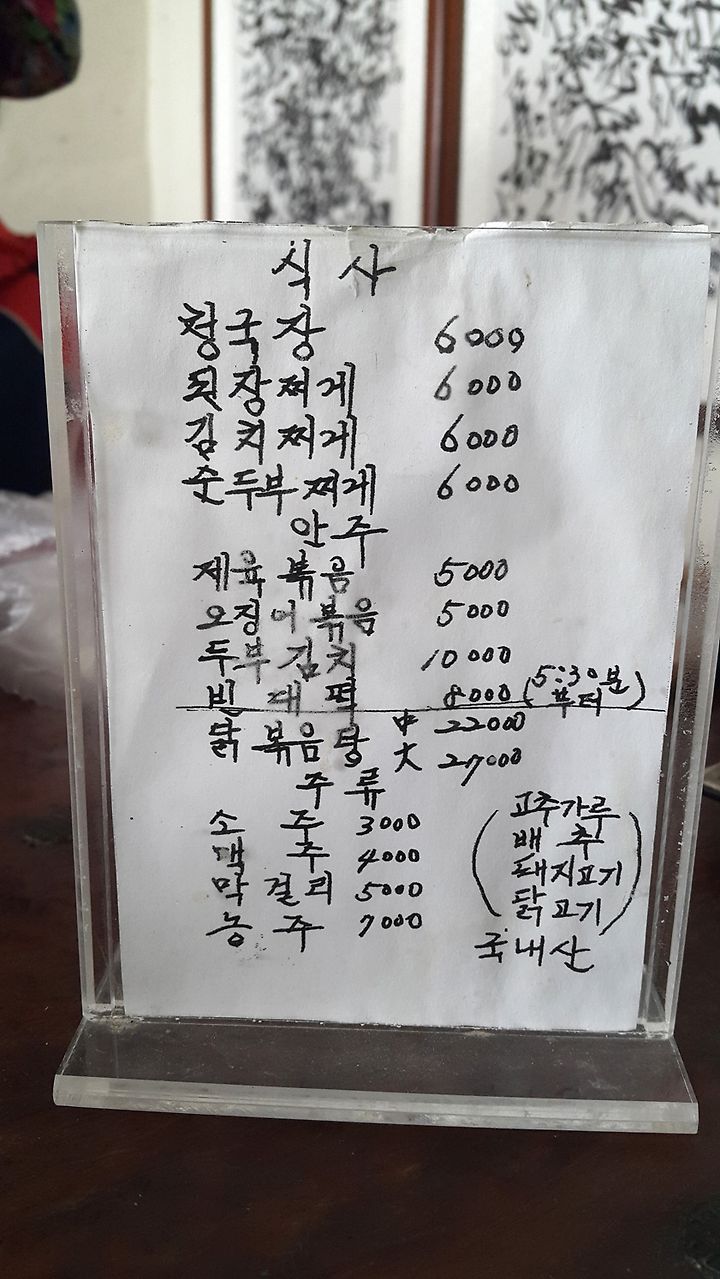 식사
청국장 6000
된장찌게 6000
김치찌게 6000
순두부찌게 6000
안주
제육볶음 5000
오징어볶음 5000
두부김치 10000
빈대떡 8000 (5:30분부터)
닭볶음탕 中 22000
大 27000
주류
소주 3000
맥주 4000
막걸리 5000
농주 7000
(고추가루
배추
돼지고기
닭고기)
국내산